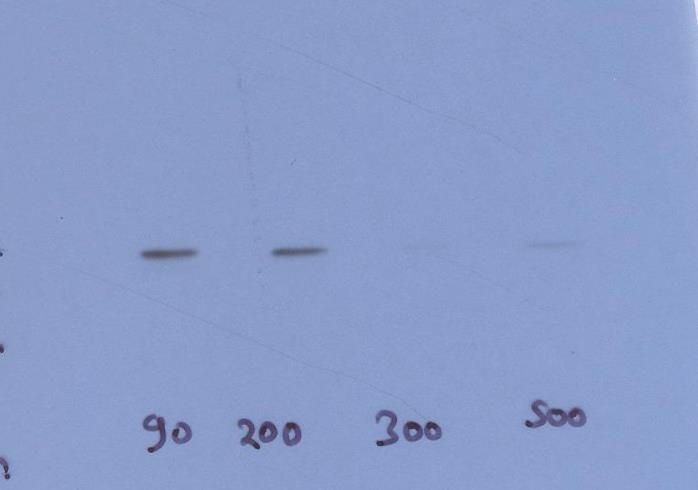 90 200 300 500